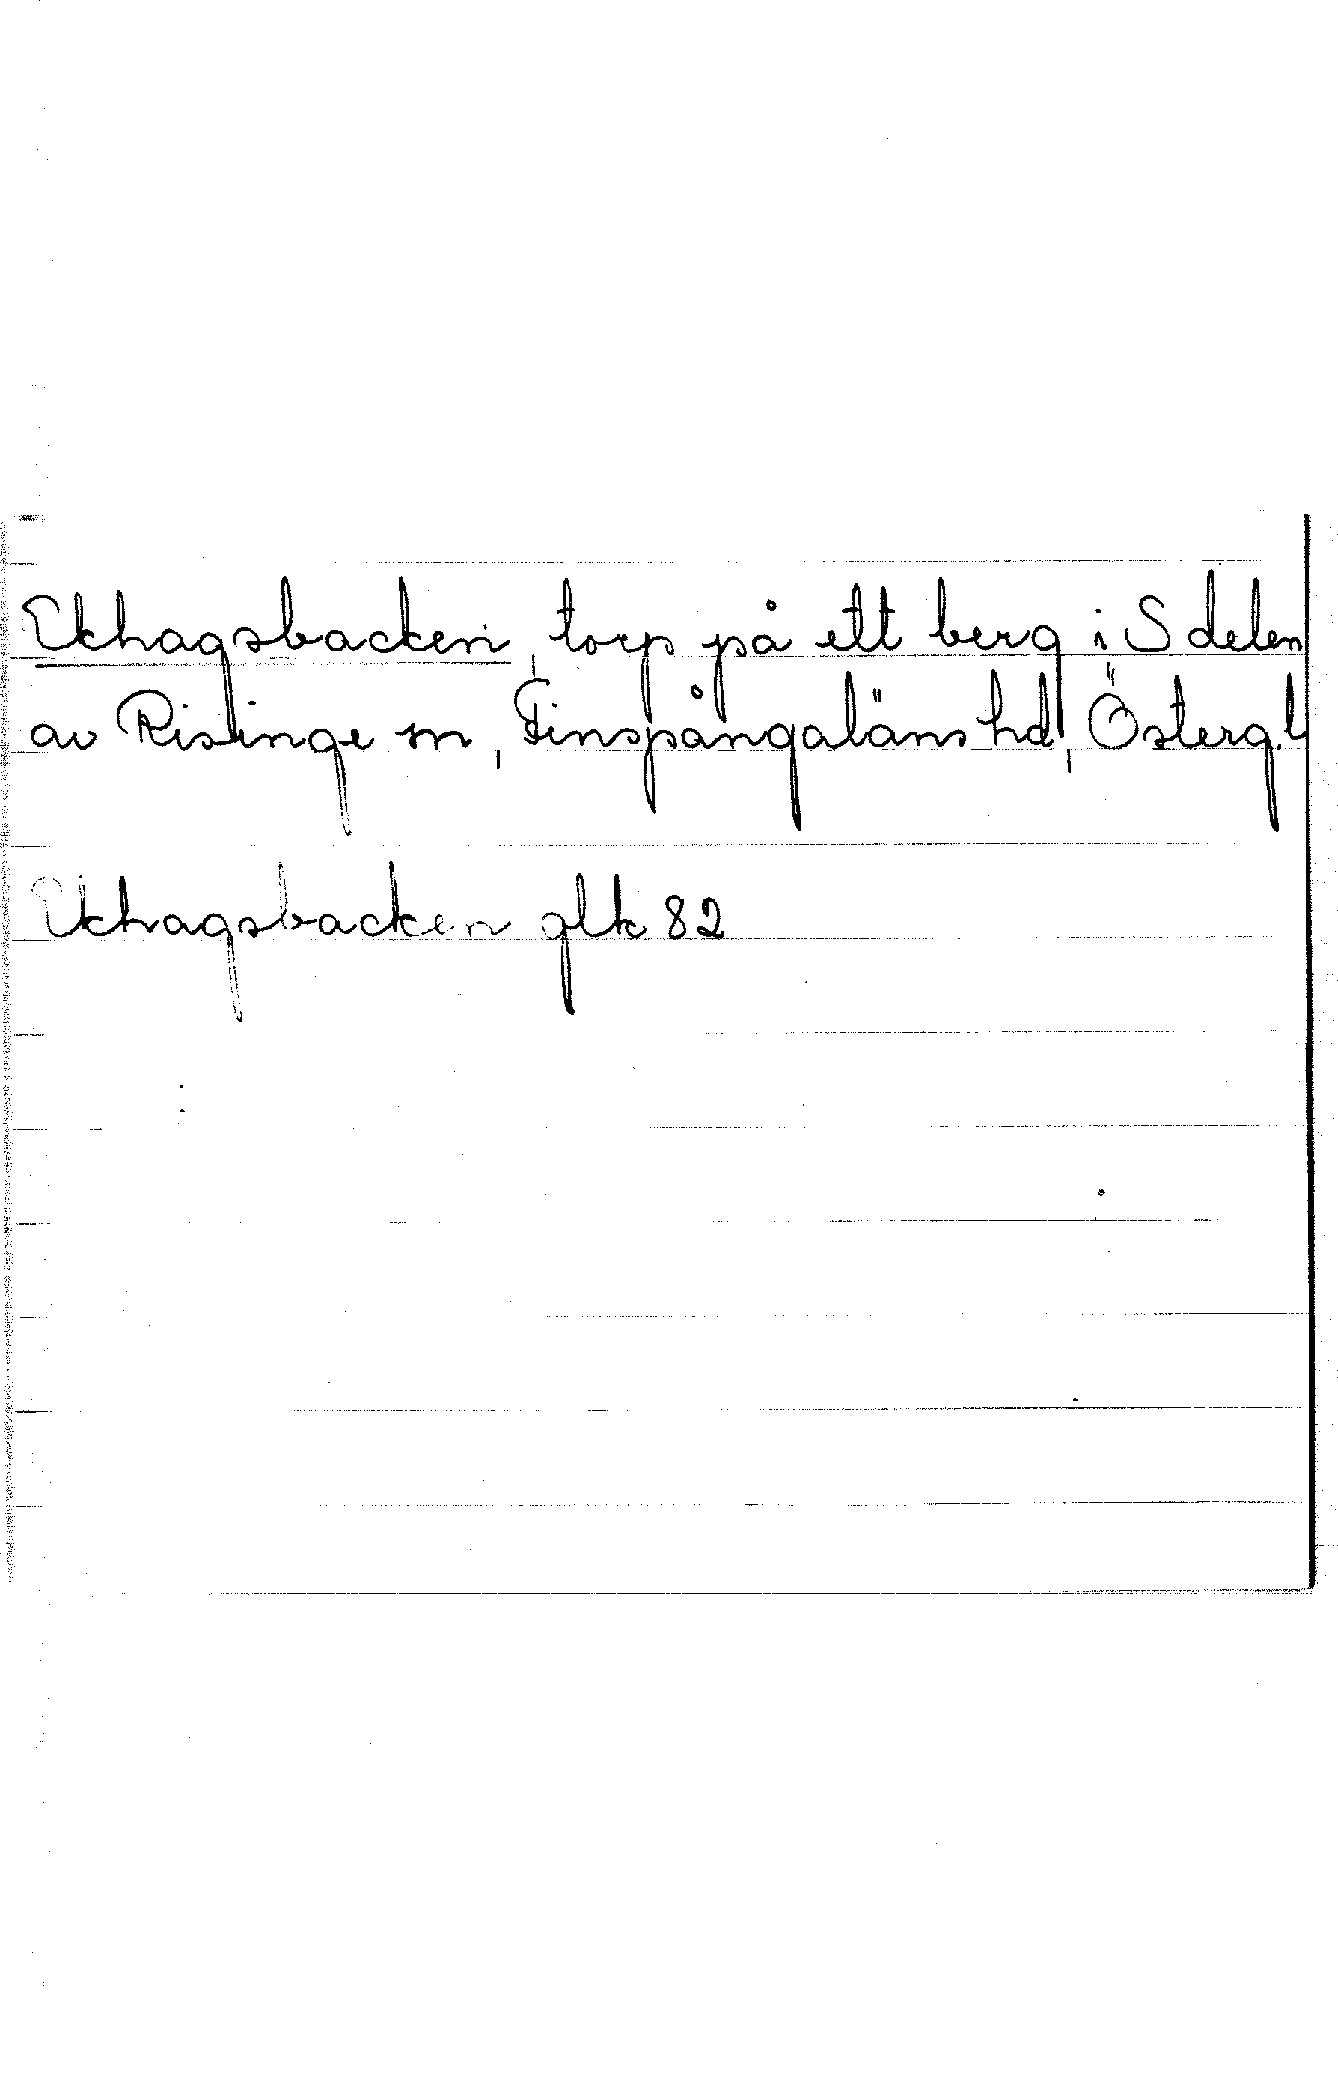 Ekhagsbacken, torp på ett berg i S delen
av Risinge sn, Finspångaläns hd, Österg. l
Ekhagsbacken glk 82